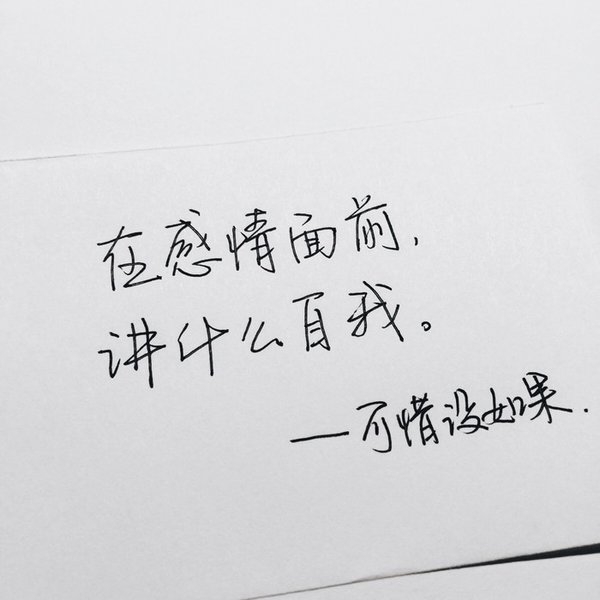 在感情面前,
讲什么自我。
—可惜没如果.